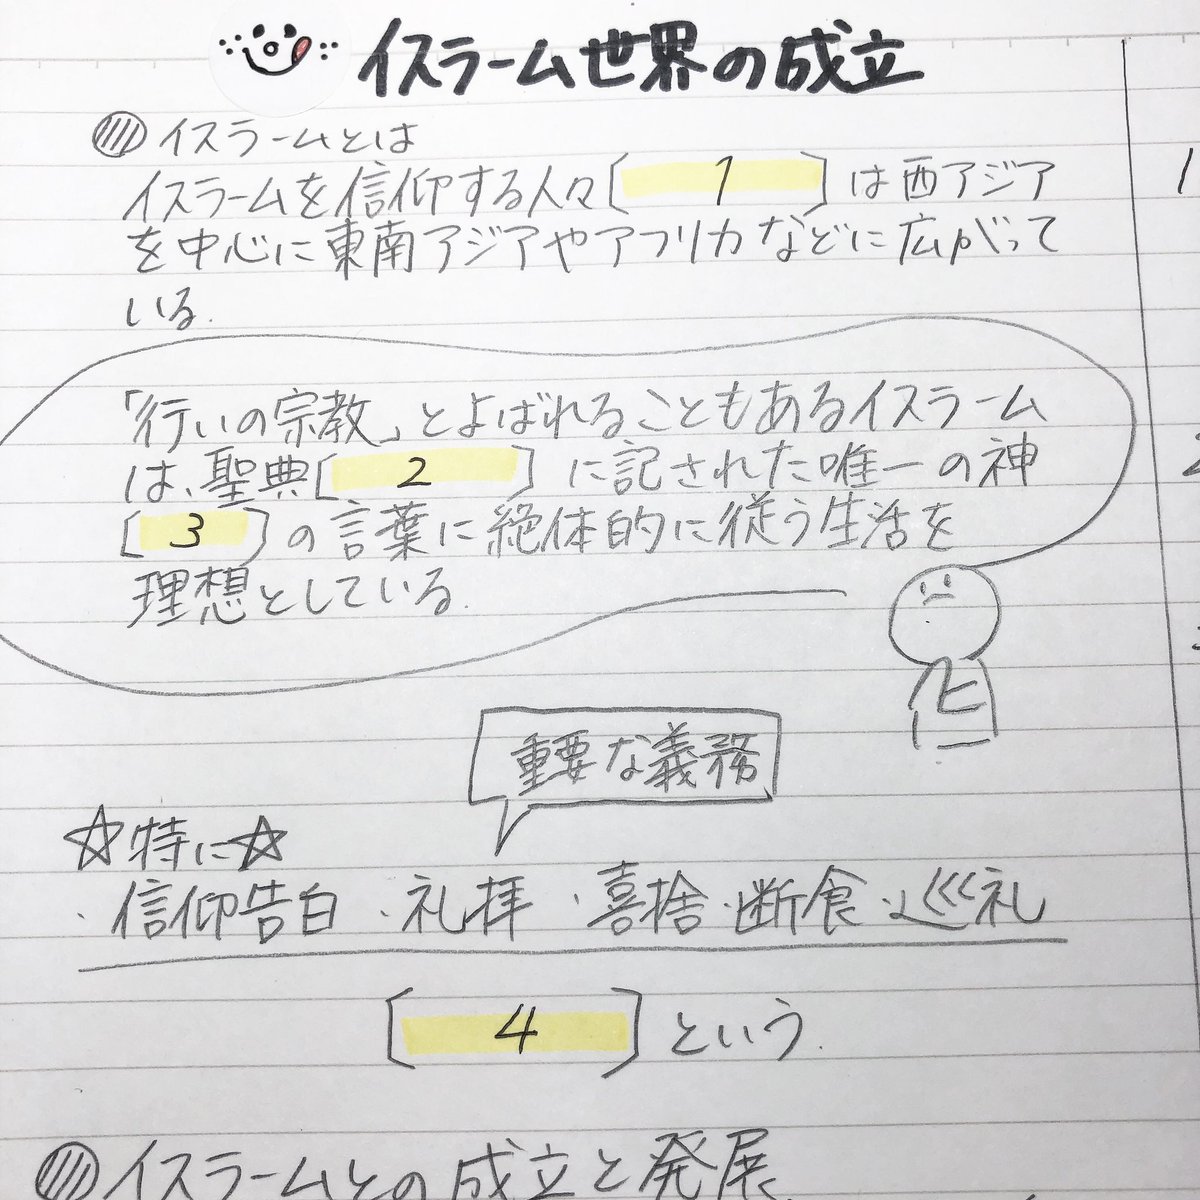 イスラーム世界の成立
イスラームとは
イスラームを信仰する人々[ 1 ]は西アジア
を中心に東南アジアやアフリカなどに広がって
いる.
「行いの宗教」とよばれることもあるイスラーム
は、聖典[ 2 ]に記された唯一の神
[ 3 ]の言葉に絶体的に従う生活を
理想としている.
重要な義務
☆特に☆
・信仰告白・礼拝・喜捨・断食・巡礼
[ 4 ]という.
イスラームとの成立と発展
1
2